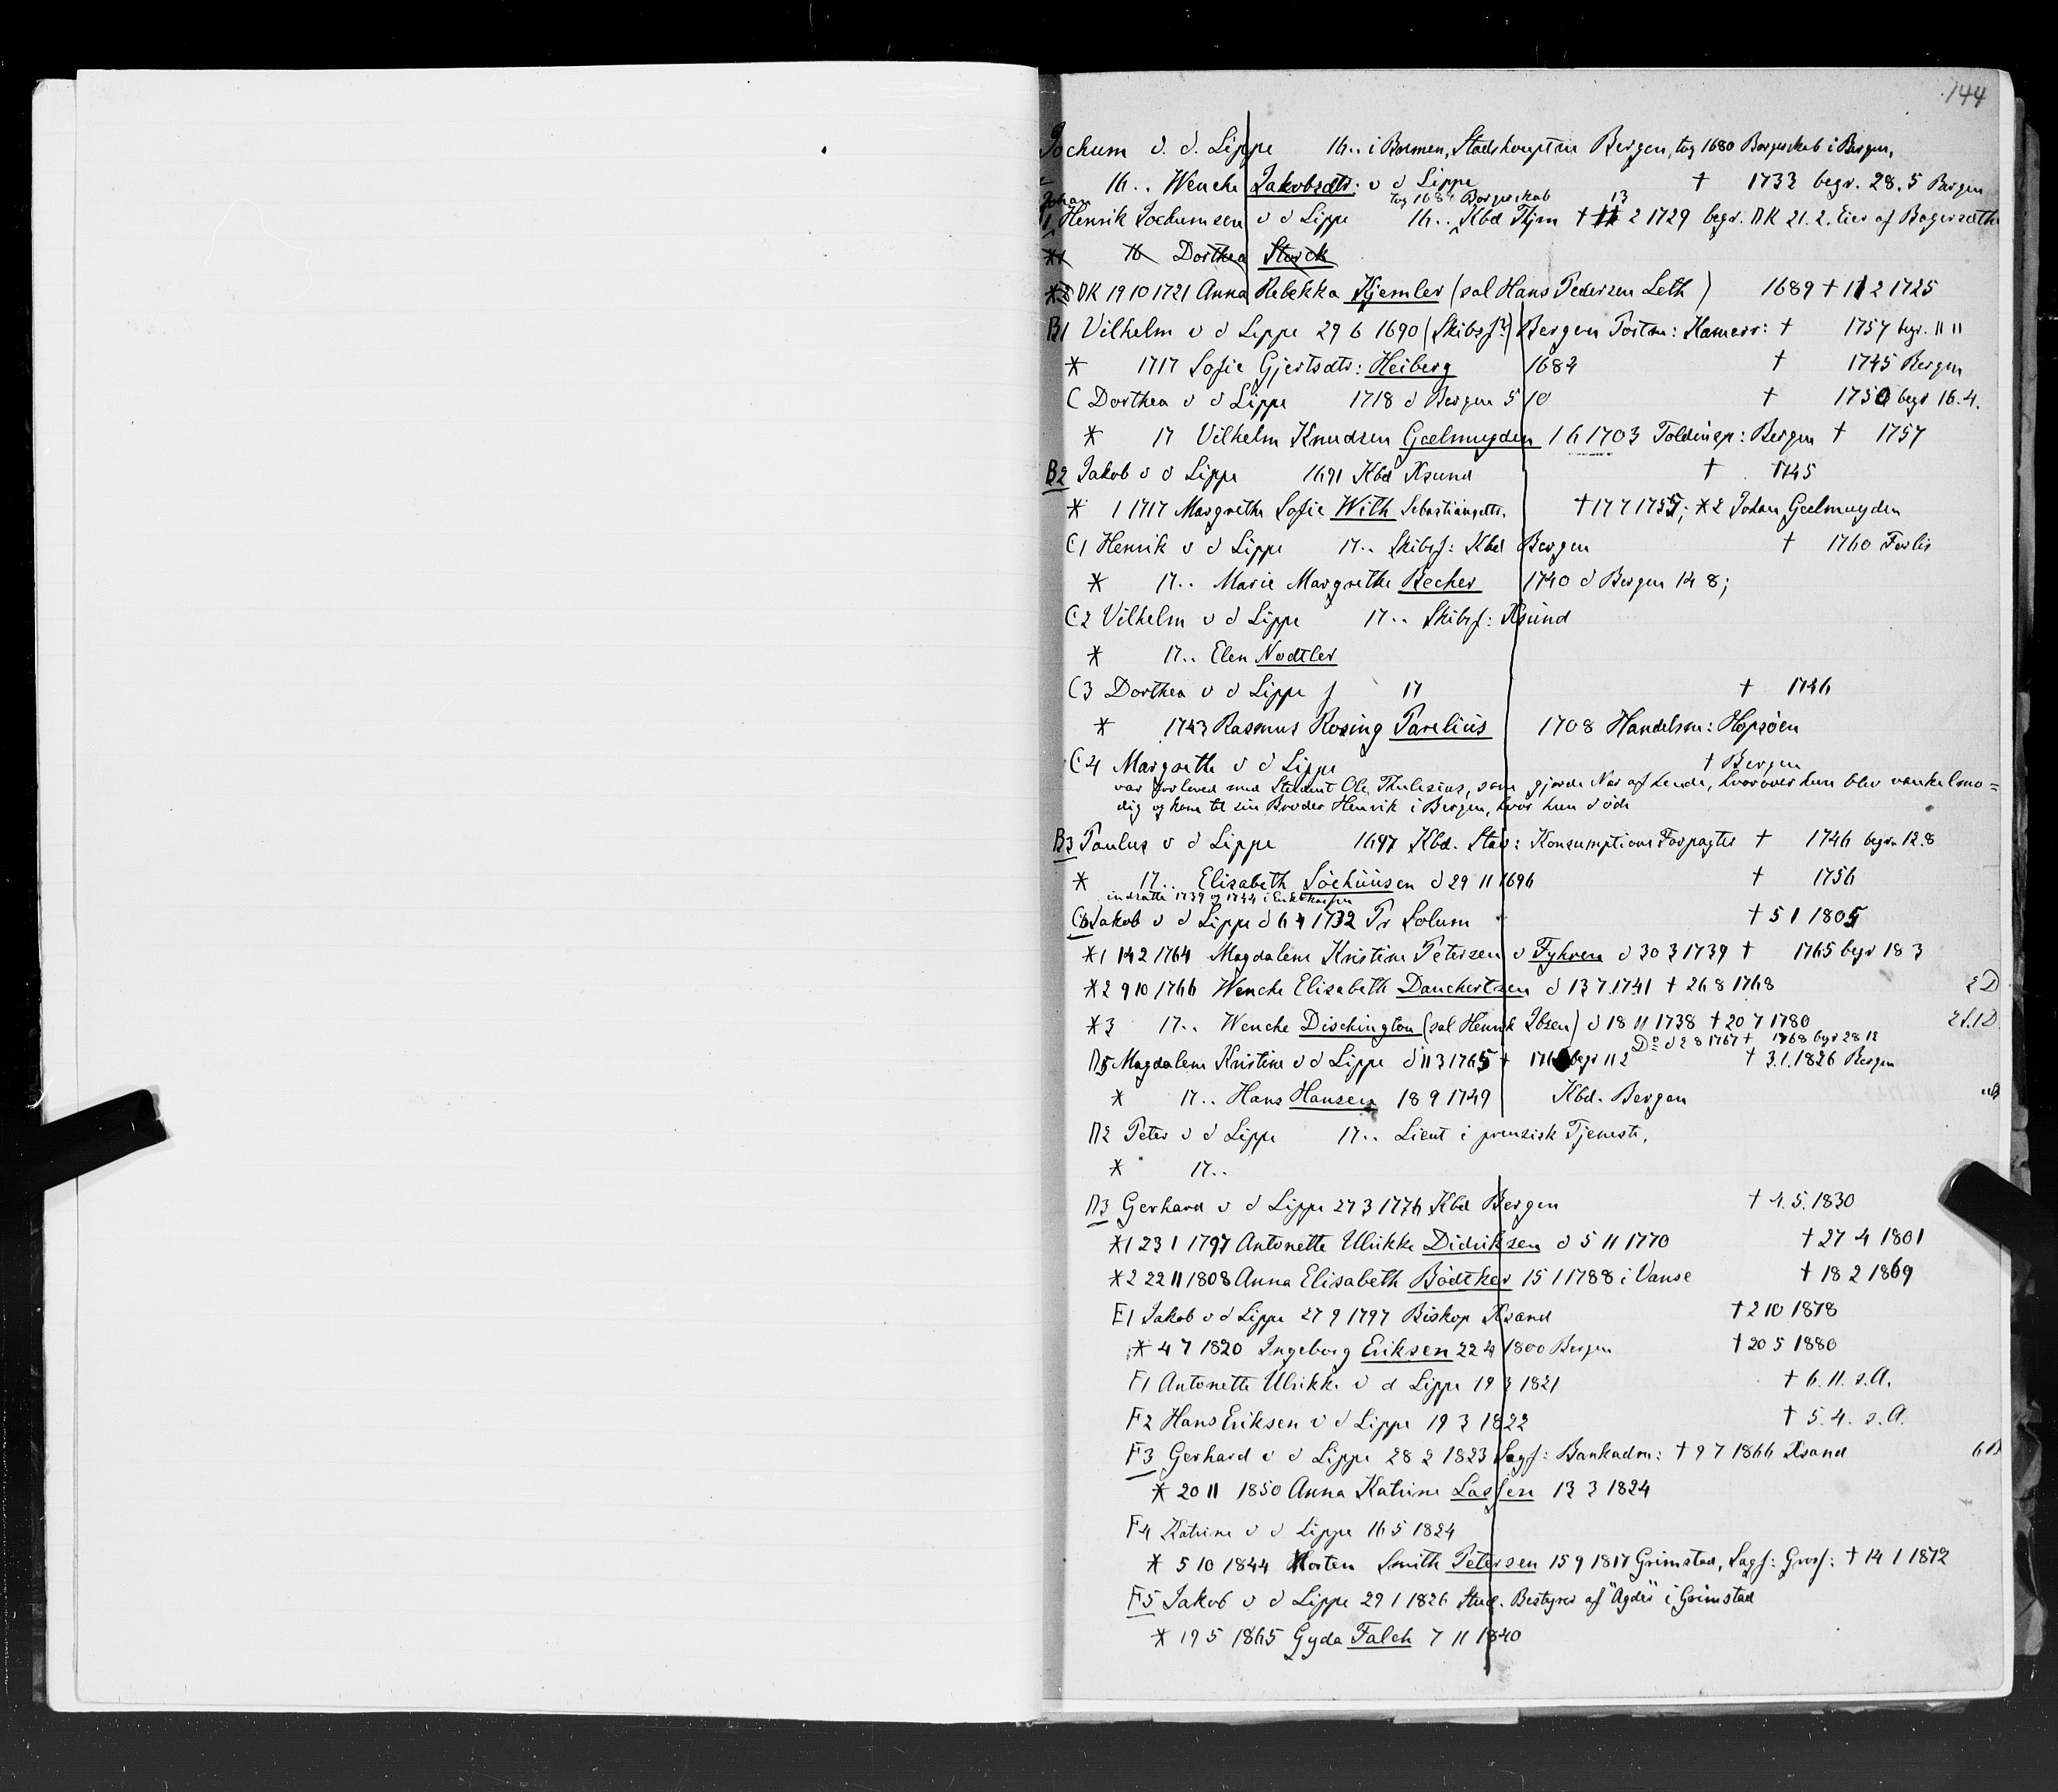 144
Jochum v. d. Lippe 16.. i Bremen, Stadshauptm Bergen, tog 1680 Borgerskab i Bergen,
16.. Wenche Jakobsdtr: v d Lippe † 1733 begr. 28.5 Bergen
Johan tog 1684 Borgerskab 13
1 Henrik Jochumsen v d Lippe 16.. Kbd Thjm † 11 2 1729 begr. DK 21.2. Eier af
*1 16 Dorthea Storck
*2 DK 19 10 1721 Anna Rebekka Kjemler (sal Hans Pedersen Leth) 1689 † 11 2 1725
B1 Vilhelm v d Lippe 29 6 1690 (Skibsf:) Bergen Postm: Kamerr: † 1757 begr. 11 11
* 1717 Sofie Gjertsdtr: Heiberg 1684 † 1745 Bergen
C Dorthea v d Lippe 1718 d Bergen 5 10 † 1750 begr 16.4.
* 17 Vilhelm Knudsen Geelmuyden 1 6 1703 Toldinsp: Bergen † 1757
B2 Jakob v d Lippe 1691 Kbd Ksund † 1745
* 1 1717 Margrethe Sofie With Sebastiansdtr. † 17 7 1755; *2 Johan Geelmuyden
C1 Henrik v d Lippe 17.. Skibsf: Kbd Bergen † 1760 Forlis
* 17.. Marie Margrethe Becher 1740 d Bergen 14 8;
C2 Vilhelm v d Lippe 17.. Skibsf: Ksund
* 17.. Elen Nodtler
C3 Dorthea v d Lippe f 17 † 1746
* 1743 Rasmus Rosing Parelius 1708 Handelsm: Hopsöen
C4 Margrethe v d Lippe † Bergen
var forloved med Student Ole Thulesius, som gjorde Nar af hende, hvorover hun blev vankelmo=
dig og kom til sin Broder Henrik i Bergen, hvor hun döde
B3 Paulus v d Lippe 1697 Kbd. Stav: Konsumptions Forpagter † 1746 begr. 12.8
* 17.. Elisabeth Söchüüsen d 29 11 1696 † 1756
indsatte 1739 og 1744 i Enkekassen
C6 Jakob v d Lippe d 6 4 1732 Pr Solum † 5 1 1805
*1 14 2 1764 Magdalene Kristine Petersen v Fyhren d 30 3 1739 † 1765 begr 18 3
*2 9 10 1766 Wenche Elisabeth Danchertsen d 13 7 1741 † 26 8 1768 2 D
*3 17.. Wenche Dischington (sal Henrik Ibsen) d 18 11 1738 † 20 7 1780 2 S. 1 D
Do d 28 1767 † 1768 begr 28 12
D5 Magdalene Kristine v d Lippe d 11 3 1765 † begr 11 2 † 3.1.1826 Bergen
* 17.. Hans Hansen 18 9 1749 Kbd. Bergen
D2 Peter v d Lippe 17.. Lieut i preusisk Tjeneste.
* 17..
D3 Gerhard v d Lippe 27 3 1776 Kbd Bergen † 4.5.1830
*1 23 1 1797 Antonette Ulrikke Didriksen d 5 11 1770 † 27 4 1801
*2 22 11 1808 Anna Elisabeth Bödtker 15 1 1788 i Vanse † 18 2 1869
E1 Jakob v d Lippe 27 9 1797 Biskop Ksand † 2 10 1878
* 4 7 1820 Ingeborg Eriksen 22 4 1800 Bergen † 20 5 1880
F1 Antonette Ulrikke v d Lippe 19 3 1821 † 6.11. s.A.
F2 Hans Eriksen v d Lippe 19 3 1822 † 5.4. s.A.
F3 Gerhard v d Lippe 28 2 1823 Sagf: Bankadm: † 9 7 1866 Ksand 6 B
* 20 11 1850 Anna Katrine Lassen 13 3 1824
F4 Katrine v d Lippe 16 5 1824
* 5 10 1844 Morten Smith Petersen 15 9 1817 Grimstad, Sagf: Grosf: † 14 1 1872
F5 Jakob v d Lippe 29 1 1826 Stud. Bestyrer af "Agder" i Grimstad
* 19 5 1865 Gyda Falch 7 11 1840